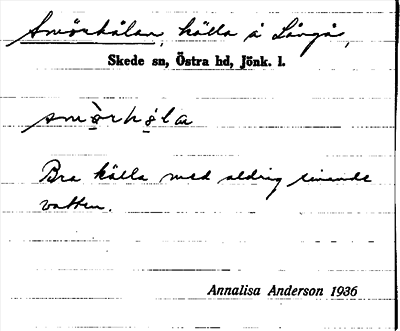 Smörhålan, källa å Långå,
Skede sn, Östra hd, Jönk. l.
smö̀rhå̀la
Bra källa med aldrig sinande
vatten.
Annalisa Anderson 1936